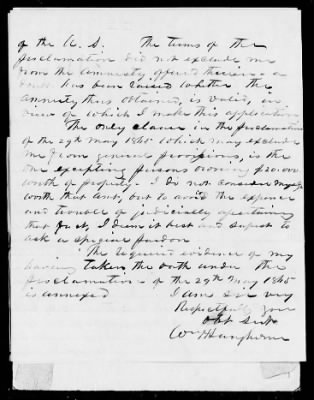 of the U. S. The terms of the
proclamation did not exclude me
from the amnesty, offered therein - a
doubt has been raised whether the
amnesty thus obtained, is valid, in
view of which I make this application
The only clause in the proclamation
of the 29th May 1865 which may exclude
me from general provisions, is the
one excepting persons owning $20.000
worth of property. I do not consider myself
worth that amt, but to avoid the expense
and trouble of judicially ascertaining
that fact, I deem it best and safest to
ask a special pardon
The required evidence of my
having taken the oath under the
proclamation of the 29th May 1865
is annexed I am Sir very
Respectfully your
Obt Servt
Wm